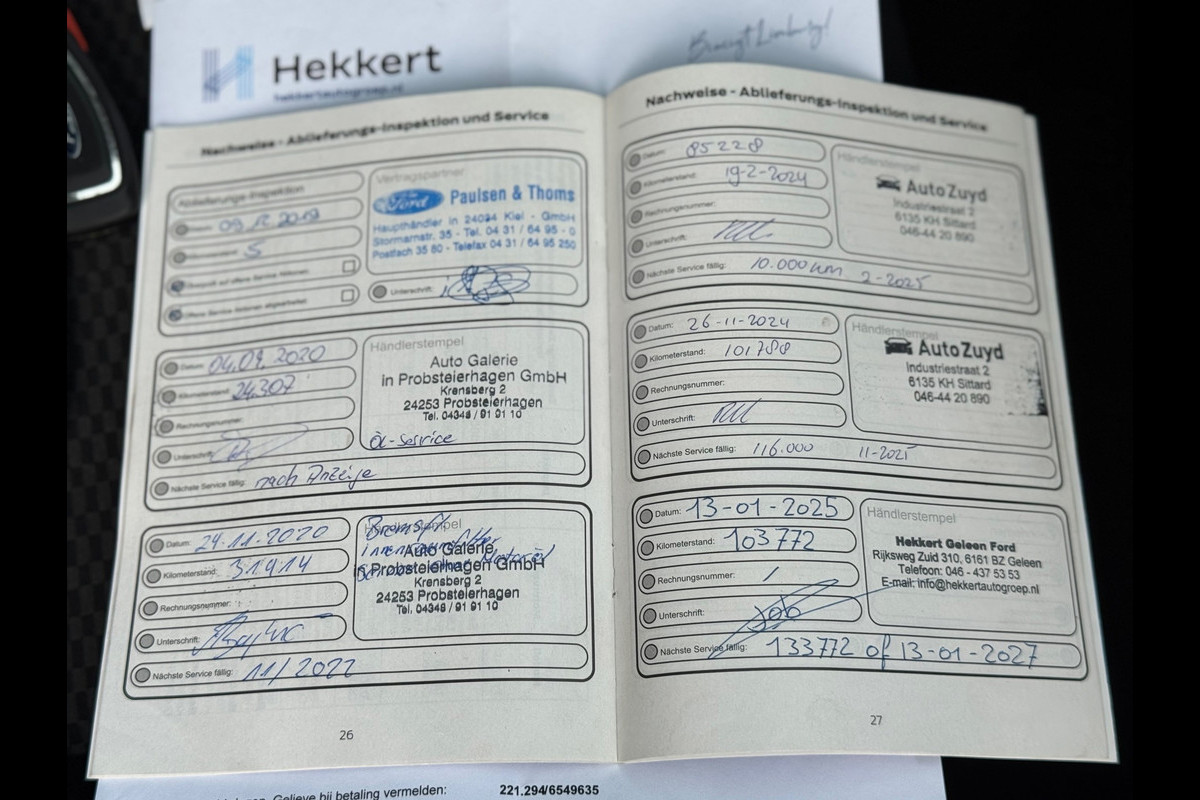 Hekkert
hekkertautogroep.nl
Nachweise - Ablieferungs-Inspektion und Service
Ablieferungs-Inspektion
09.12.2019
5
Vertragspartner
Ford Paulsen & Thoms
Haupthändler in 24094 Kiel - GmbH
Stormarnstr. 35 - Tel. 04 31 / 64 95 - 0
Postfach 35 80 - Telefax 04 31 / 64 95 250
Unterschrift:
Datum: 04.09.2020
Kilometerstand: 24.307
Rechnungsnummer:
Unterschrift:
Nächste Service fällig: nach Anzeige
Händlerstempel
Auto Galerie
in Probsteierhagen GmbH
Krensberg 2
24253 Probsteierhagen
Tel. 04348 / 91 91 10
Öl-Service
Datum: 24.11.2020
Kilometerstand: 31414
Rechnungsnummer:
Unterschrift:
Nächste Service fällig: 11/2022
Händlerstempel
Auto Galerie
in Probsteierhagen GmbH
Krensberg 2
24253 Probsteierhagen
Tel. 04348 / 91 91 10
26
Nachweise - Ablieferungs-Inspektion und Service
Datum: 85228
Kilometerstand: 19-2-2024
Rechnungsnummer:
Unterschrift:
Nächste Service fällig: 10.000 km 2-2025
Händlerstempel
Auto Zuyd
Industriestraat 2
6135 KH Sittard
046-44 20 890
Datum: 26-11-2024
Kilometerstand: 101788
Rechnungsnummer:
Unterschrift:
Nächste Service fällig: 116.000 11-2025
Händlerstempel
Auto Zuyd
Industriestraat 2
6135 KH Sittard
046-44 20 890
Datum: 13-01-2025
Kilometerstand: 103772
Rechnungsnummer: /
Unterschrift:
Nächste Service fällig: 133772 of 13-01-2027
Händlerstempel
Hekkert Geleen Ford
Rijksweg Zuid 310, 6161 BZ Geleen
Telefoon: 046 - 437 53 53
E-mail: info@hekkertautogroep.nl
27
Gelieve bij betaling vermelden: 221.294/6549635